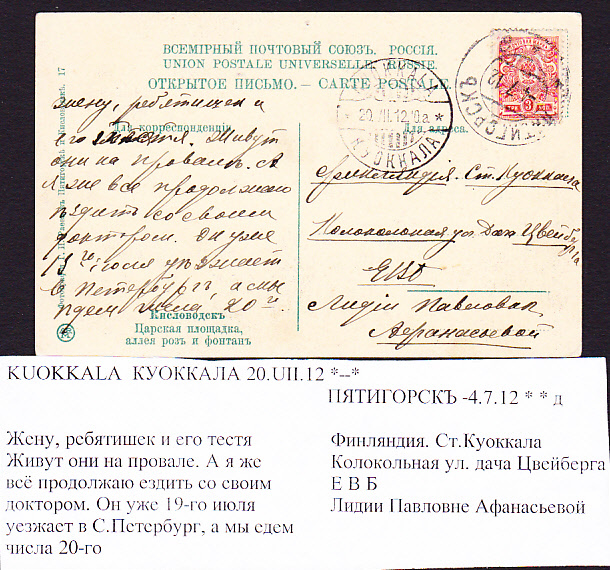 ВСЕМІРНЫЙ ПОЧТОВЫЙ СОЮЗЪ. РОССІЯ.
UNION POSTALE UNIVERSELLE. RUSSIE.
ОТКРЫТОЕ ПИСЬМО. — CARTE POSTALE.
Для корреспонденціи.
Для адреса.
жену, ребятишек и
его тестя. Живут
они на провале. А
я же все продолжаю
ѣздить со своим
доктором. Он уже
19го июля уѣзжает
в Петербург, а мы
ѣдем числа 20го.
Кисловодскъ
Царская площадка,
аллея розъ и фонтанъ
17
3
ПЯТИГОРСКЪ
КУОККАЛА
20.VII.12
KUOKKALA
Финляндия. Ст. Куоккала
Колокольная ул. Дача Цвейберга
ЕВБ
Лидии Павловне
Афанасьевой
KUOKKALA КУОККАЛА 20.UII.12 *--*
ПЯТИГОРСКЪ -4.7.12 * * д
Жену, ребятишек и его тестя
Живут они на провале. А я же
всё продолжаю ездить со своим
доктором. Он уже 19-го июля
уезжает в С.Петербург, а мы едем
числа 20-го
Финляндия. Ст.Куоккала
Колокольная ул. дача Цвейберга
Е В Б
Лидии Павловне Афанасьевой